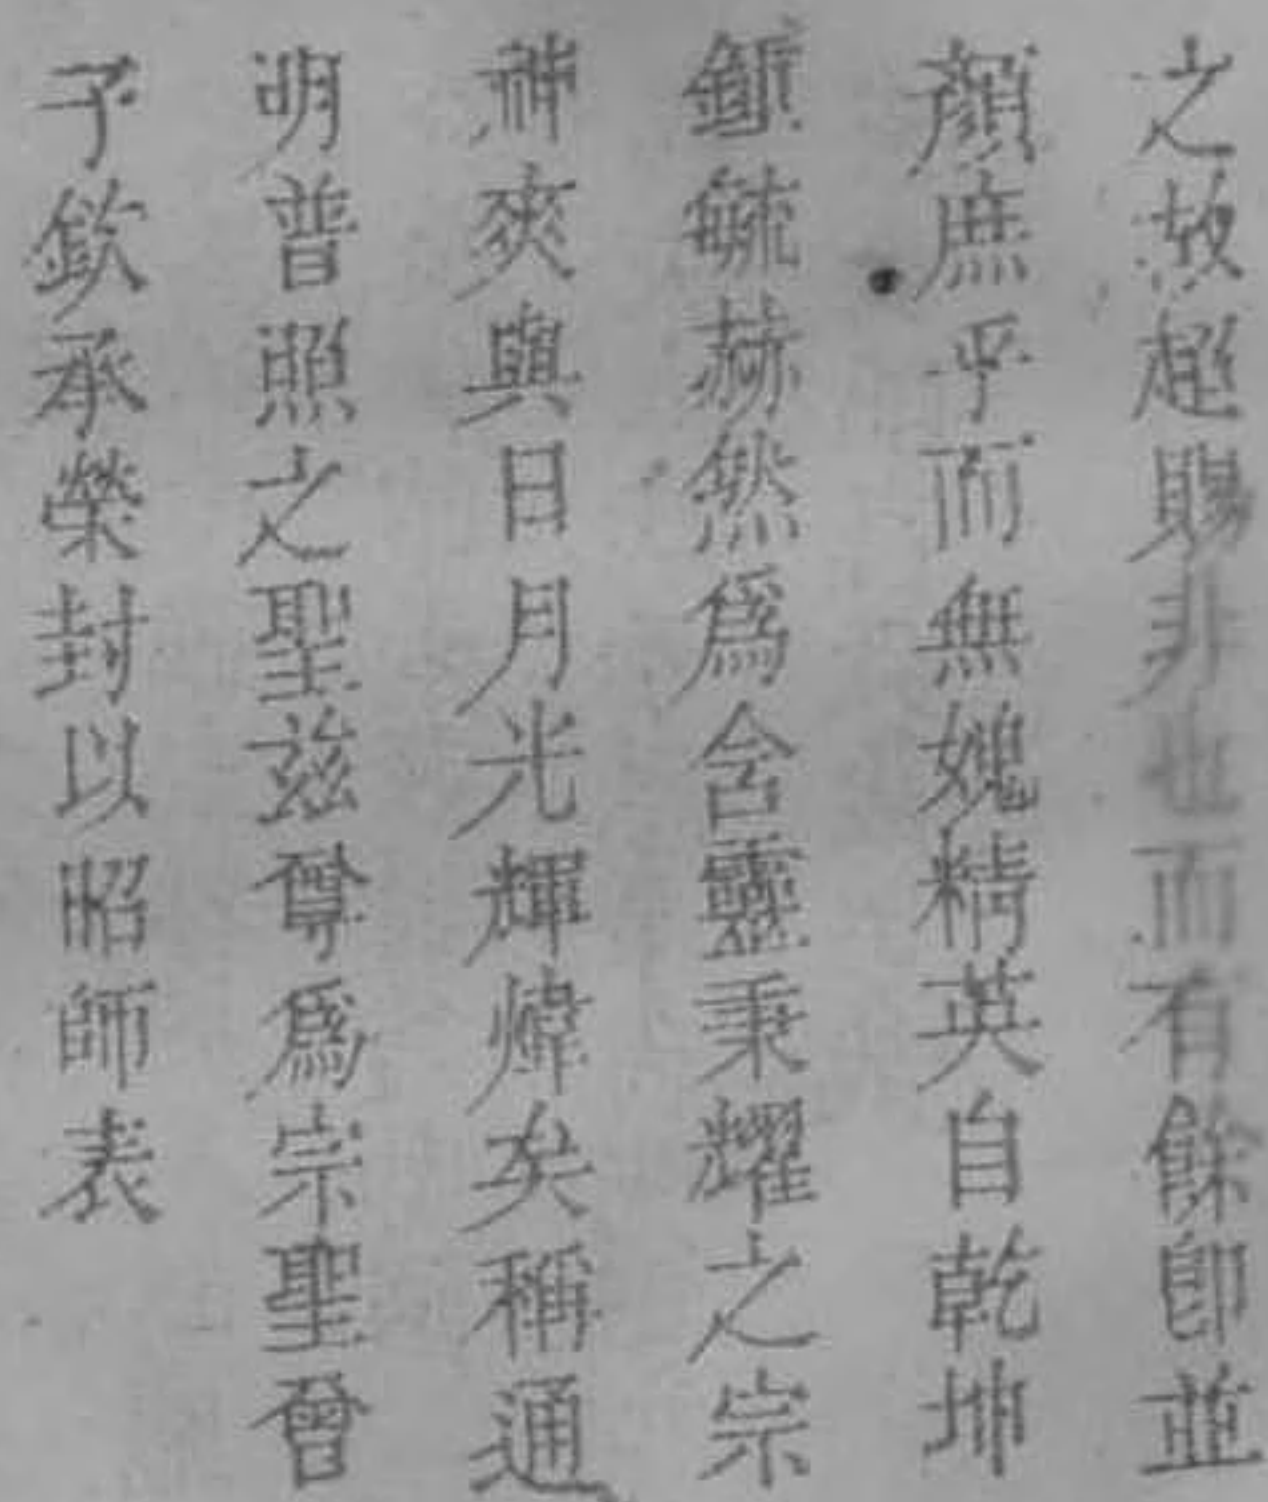 之故超賜非也而有餘即並
顏庶乎而無媿精英自乾坤
毓赫然爲含靈秉耀之宗
神爽與日月光輝煒矣稱通
明普照之聖茲尊爲宗聖曾
子欽承榮封以昭師表